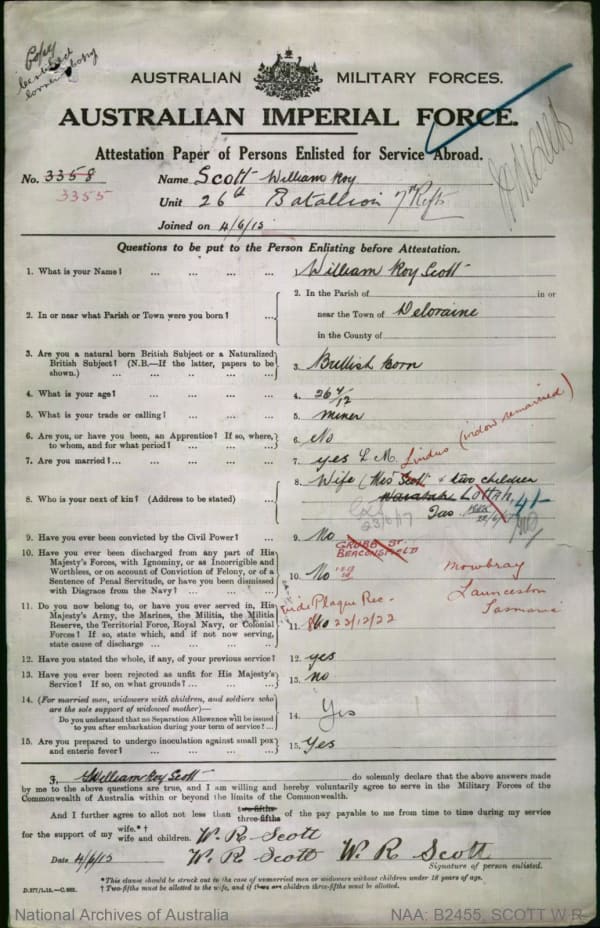 Copy
AUSTRALIAN MILITARY FORCES.
AUSTRALIAN IMPERIAL FORCE.
Attestation Paper of Persons Enlisted for Service Abroad.
No. 3358 Name Scott William Roy
3355
Unit 26th Batallion 7th Rfts
Joined on 4/6/15
Questions to be put to the Person Enlisting before Attestation.
1. What is your Name? ... ... ... William Roy Scott
2. In or near what Parish or Town were you born? ... 2. In the Parish of in or
near the Town of Deloraine
in the County of
3. Are you a natural born British Subject or a Naturalized
British Subject? (N.B.—If the latter, papers to be
shown.) ... ... ... ... 3. British Born
4. What is your age? ... ... ... 4. 26 7/12
5. What is your trade or calling? ... ... ... 5. miner
6. Are you, or have you been, an Apprentice? If so, where,
to whom, and for what period? ... ... ... 6. No
7. Are you married? ... ... ... ... 7. yes L. M. Lindus (widow remarried)
8. Who is your next of kin? (Address to be stated) ... 8. Wife (Mrs Scott & two children
Waratah Lottah,
Tas.
23/6/17
9. Have you ever been convicted by the Civil Power? ... 9. No
GRUBB ST.
BEACONSFIELD
10. Have you ever been discharged from any part of His
Majesty's Forces, with Ignominy, or as Incorrigible and
Worthless, or on account of Conviction of Felony, or of a
Sentence of Penal Servitude, or have you been dismissed
with Disgrace from the Navy? ... ... ... 10. No
Mowbray
Launceston
Tasmania
11. Do you now belong to, or have you ever served in, His
Majesty's Army, the Marines, the Militia, the Militia
Reserve, the Territorial Force, Royal Navy, or Colonial
Forces? If so, state which, and if not now serving,
state cause of discharge ... ... ... 11. No
Plaque Rec.
22/12/22
12. Have you stated the whole, if any, of your previous service? 12. yes
13. Have you ever been rejected as unfit for His Majesty's
Service? If so, on what grounds? ... ... ... 13. no
14. (For married men, widowers with children, and soldiers who
are the sole support of widowed mother)—
Do you understand that no Separation Allowance will be issued
to you after embarkation during your term of service? ... 14. Yes
15. Are you prepared to undergo inoculation against small pox
and enteric fever? ... ... ... ... 15. Yes
I, William Roy Scott do solemnly declare that the above answers made
by me to the above questions are true, and I am willing and hereby voluntarily agree to serve in the Military Forces of the
Commonwealth of Australia within or beyond the limits of the Commonwealth.
And I further agree to allot not less than two-fifths three-fifths of the pay payable to me from time to time during my service
for the support of my wife.*† wife and children. W. R. Scott
Date 4/6/15 W. R. Scott W. R. Scott
Signature of person enlisted.
*This clause should be struck out in the case of unmarried men or widowers without children under 18 years of age.
†Two-fifths must be allotted to the wife, and if there are children three-fifths must be allotted.
National Archives of Australia NAA: B2455, SCOTT W R